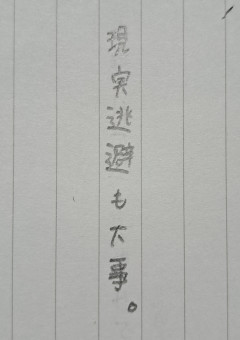 現実逃避も大事。